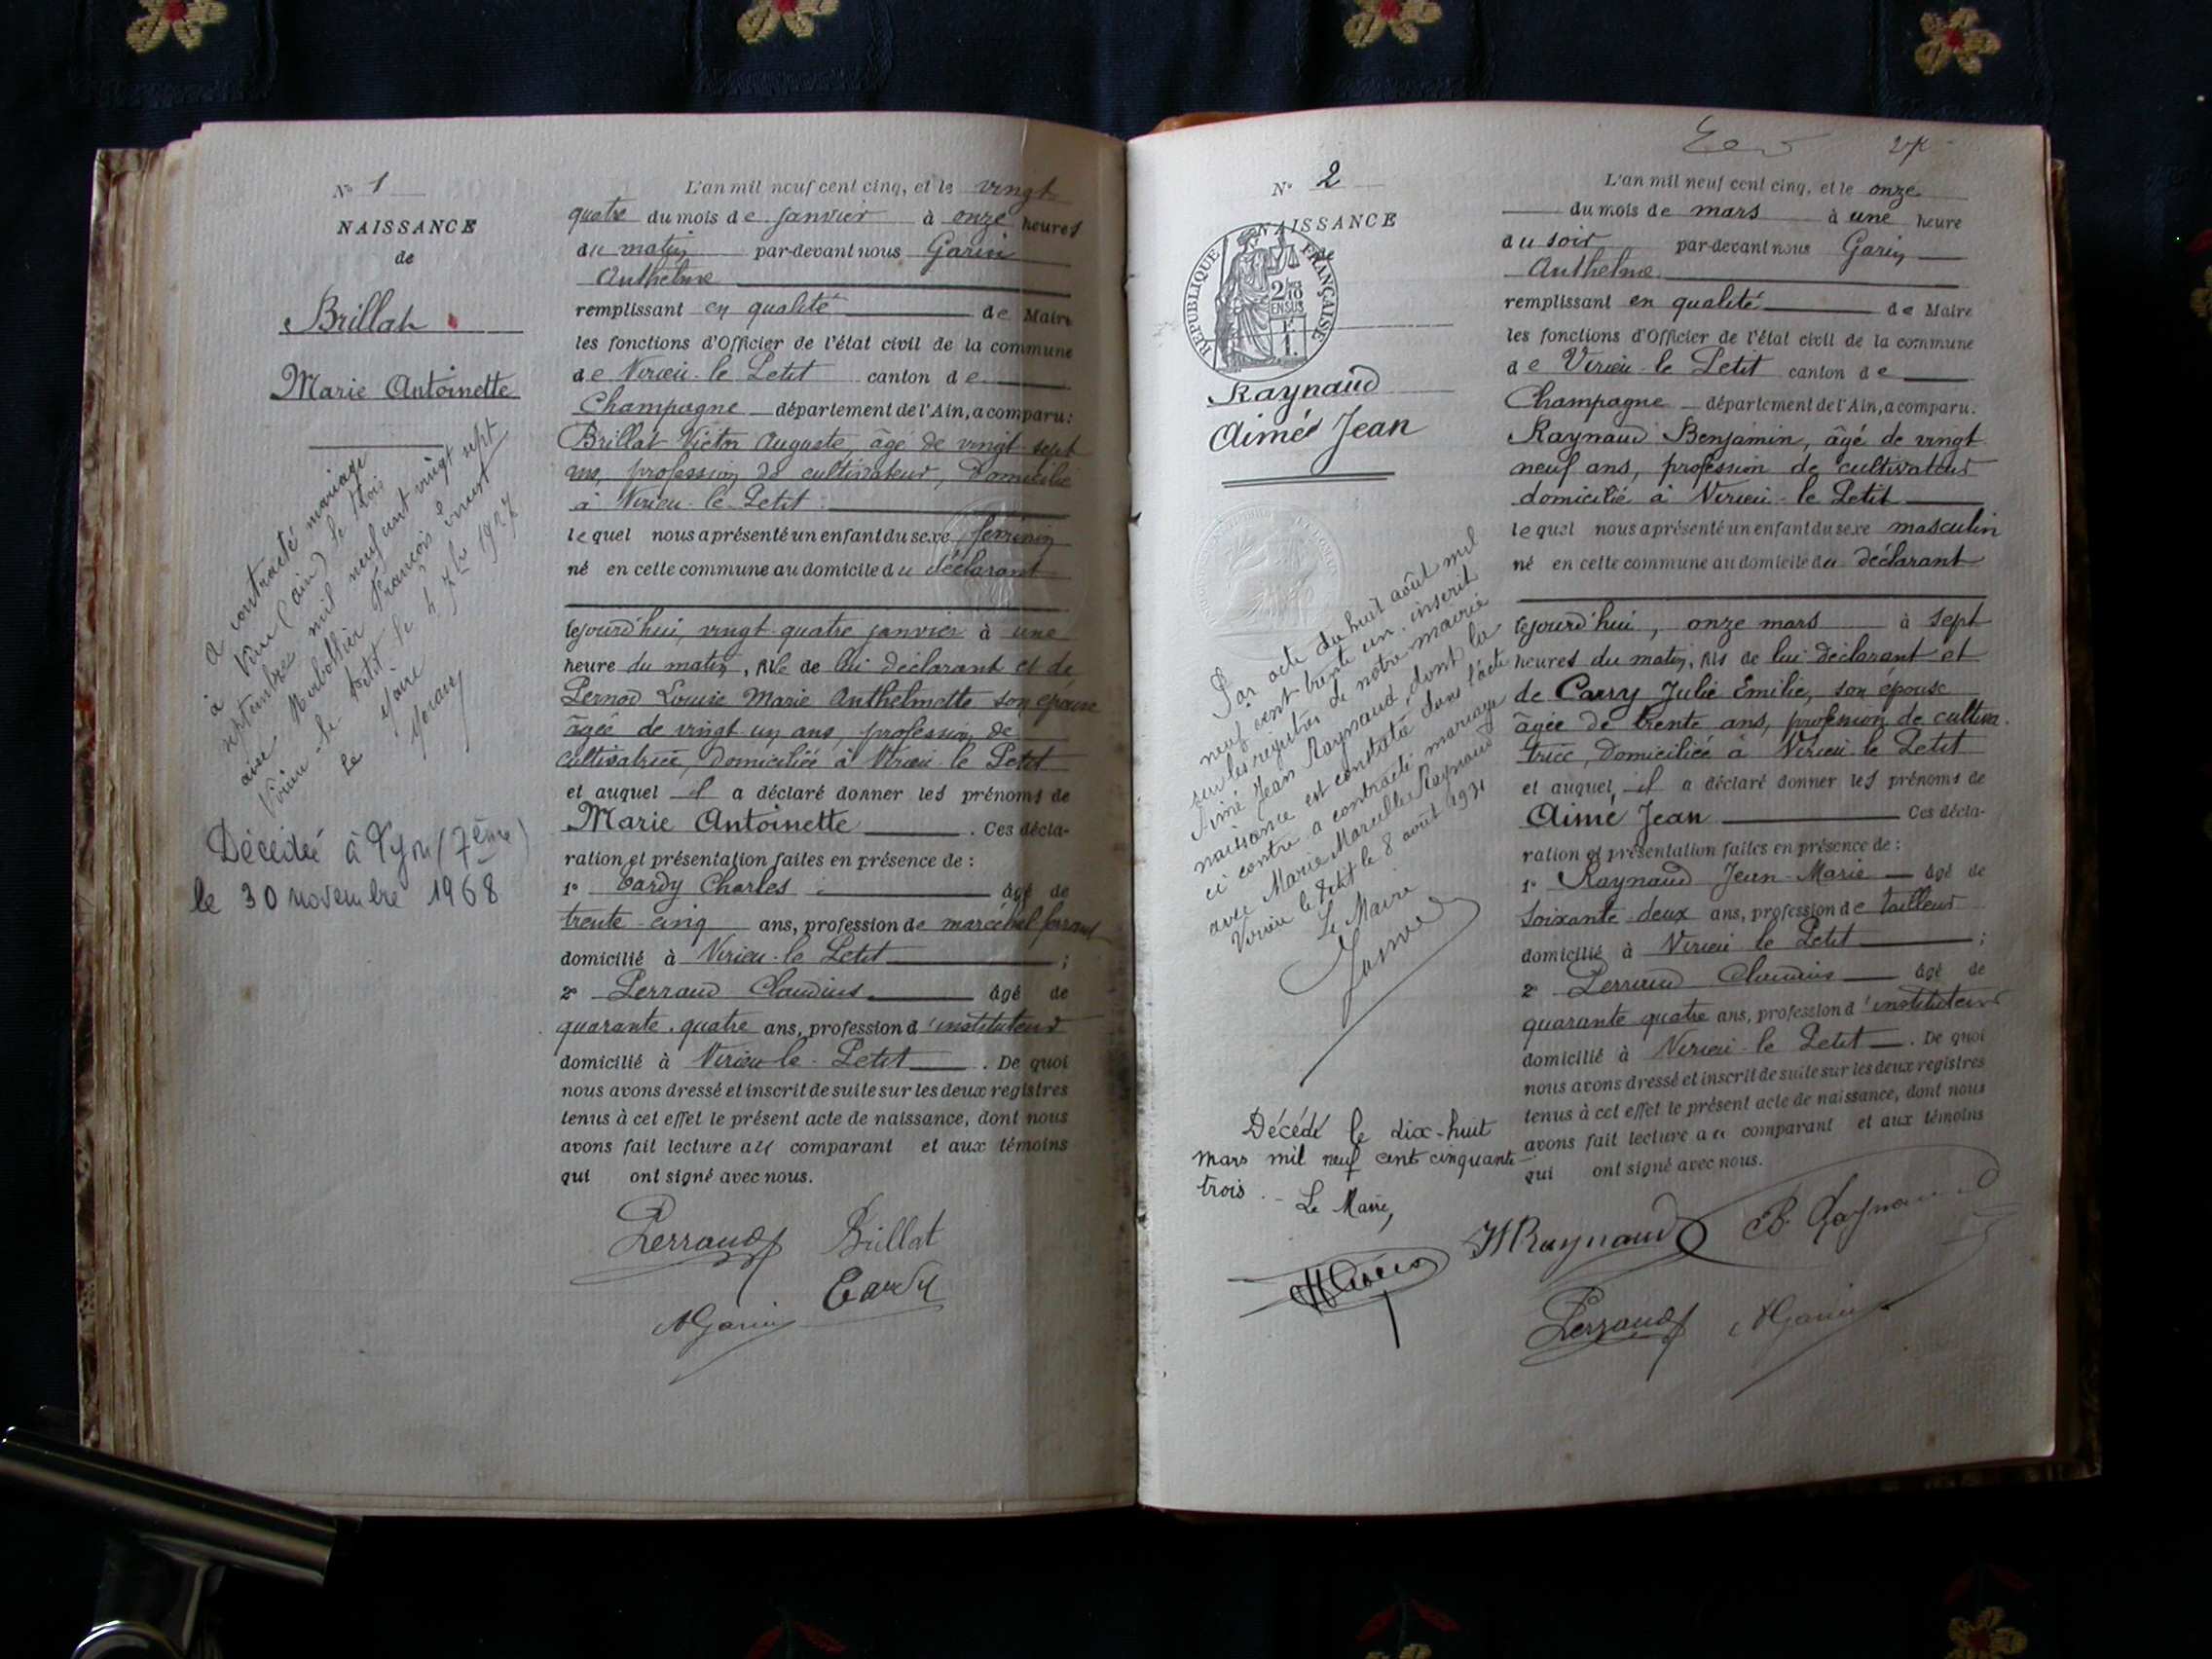 N° 1
NAISSANCE
de
Brillat
Marie Antoinette
a contracté mariage
à (ain) le trois
septembre mil neuf cent vingt sept
avec François
Virieu-le-Petit le 4 7bre 1927
Le Maire
Décédée à Lyon (7ème)
le 30 novembre 1968
L'an mil neuf cent cinq, et le vingt
quatre du mois de janvier à onze heures
du matin par-devant nous Garin
Anthelme
remplissant en qualité de Maire
les fonctions d'Officier de l'état civil de la commune
de Virieu-le-Petit canton de
Champagne département de l'Ain, a comparu:
Brillat Victor Auguste, âgé de vingt-sept
ans, profession de cultivateur, domicilié
à Virieu-le-Petit
lequel nous a présenté un enfant du sexe féminin
né en cette commune au domicile du déclarant
cejourd'hui, vingt-quatre janvier à une
heure du matin, née de lui déclarant et de
Pernod Louise Marie Anthelmette son épouse
âgée de vingt un ans, profession de
cultivatrice, domiciliée à Virieu-le-Petit
et auquel il a déclaré donner les prénoms de
Marie Antoinette . Ces décla-
ration et présentation faites en présence de :
1° Tardy Charles âgé de
trente-cinq ans, profession de maréchal ferrant
domicilié à Virieu-le-Petit ;
2° Perraud Claudius âgé de
quarante-quatre ans, profession d'instituteur
domicilié à Virieu-le-Petit . De quoi
nous avons dressé et inscrit de suite sur les deux registres
tenus à cet effet le présent acte de naissance, dont nous
avons fait lecture au comparant et aux témoins
qui ont signé avec nous.
Perraud Brillat
Tardy
AGarin
N° 2
NAISSANCE
de
RÉPUBLIQUE FRANÇAISE
2/10 EN SUS
Raynaud
Aimé Jean
Par acte du huit août mil
neuf cent trente un inscrit
sur les registres de notre mairie
Aimé Jean Raynaud, dont la
naissance est constatée dans l'acte
ci contre a contracté mariage
avec Marie Marcelle Raynaud
Virieu le Petit le 8 août 1931
Le Maire
Décédé le dix-huit
mars mil neuf cent cinquante-
trois. - Le Maire,
L'an mil neuf cent cinq, et le onze
du mois de mars à une heure
du soir par-devant nous Garin
Anthelme
remplissant en qualité de Maire
les fonctions d'Officier de l'état civil de la commune
de Virieu-le-Petit canton de
Champagne département de l'Ain, a comparu.
Raynaud Benjamin, âgé de vingt
neuf ans, profession de cultivateur
domicilié à Virieu-le-Petit
lequel nous a présenté un enfant du sexe masculin
né en cette commune au domicile du déclarant
cejourd'hui, onze mars à sept
heures du matin, fils de lui déclarant et
de Carry Julie Emilie, son épouse
âgée de trente ans, profession de cultiva-
trice, domiciliée à Virieu-le-Petit
et auquel il a déclaré donner les prénoms de
Aimé Jean Ces décla-
ration et présentation faites en présence de :
1° Raynaud Jean-Marie âgé de
soixante-deux ans, profession de tailleur
domicilié à Virieu le Petit ;
2° Perraud Claudius âgé de
quarante quatre ans, profession d'instituteur
domicilié à Virieu-le-Petit . De quoi
nous avons dressé et inscrit de suite sur les deux registres
tenus à cet effet le présent acte de naissance, dont nous
avons fait lecture au comparant et aux témoins
qui ont signé avec nous.
JMRaynaud B. Raynaud
Perraud AGarin